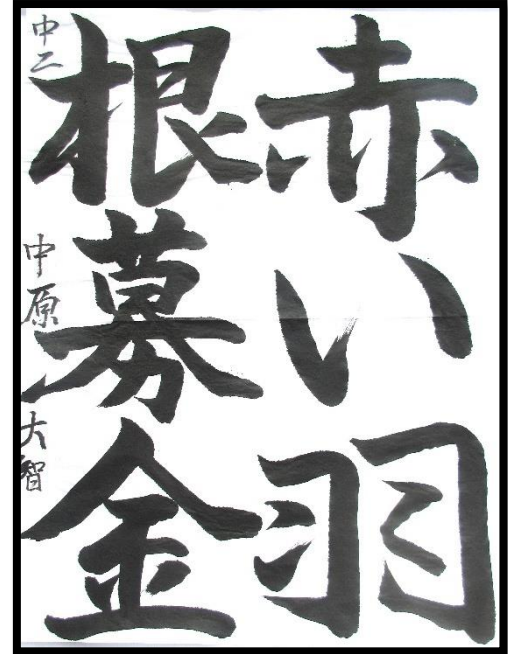 赤い羽
根募金
中二
中原
大智